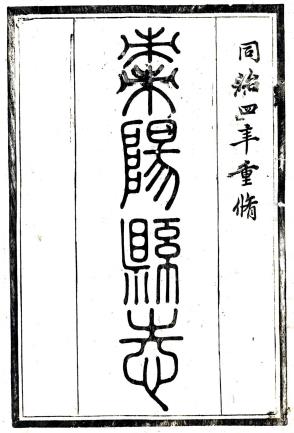 同治四年重脩
棗陽縣志